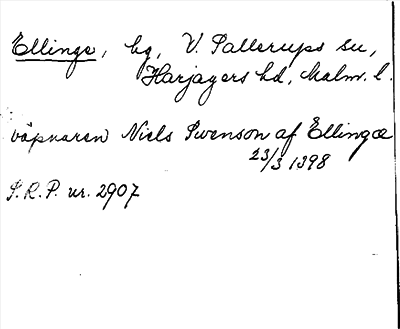 Ellinge, by, V. Sallerups sn,
Harjagers hd, Malm. l.
väpnaren Niels Swenson af Ellingæ
23/3 1398
S.R.P. nr. 2907